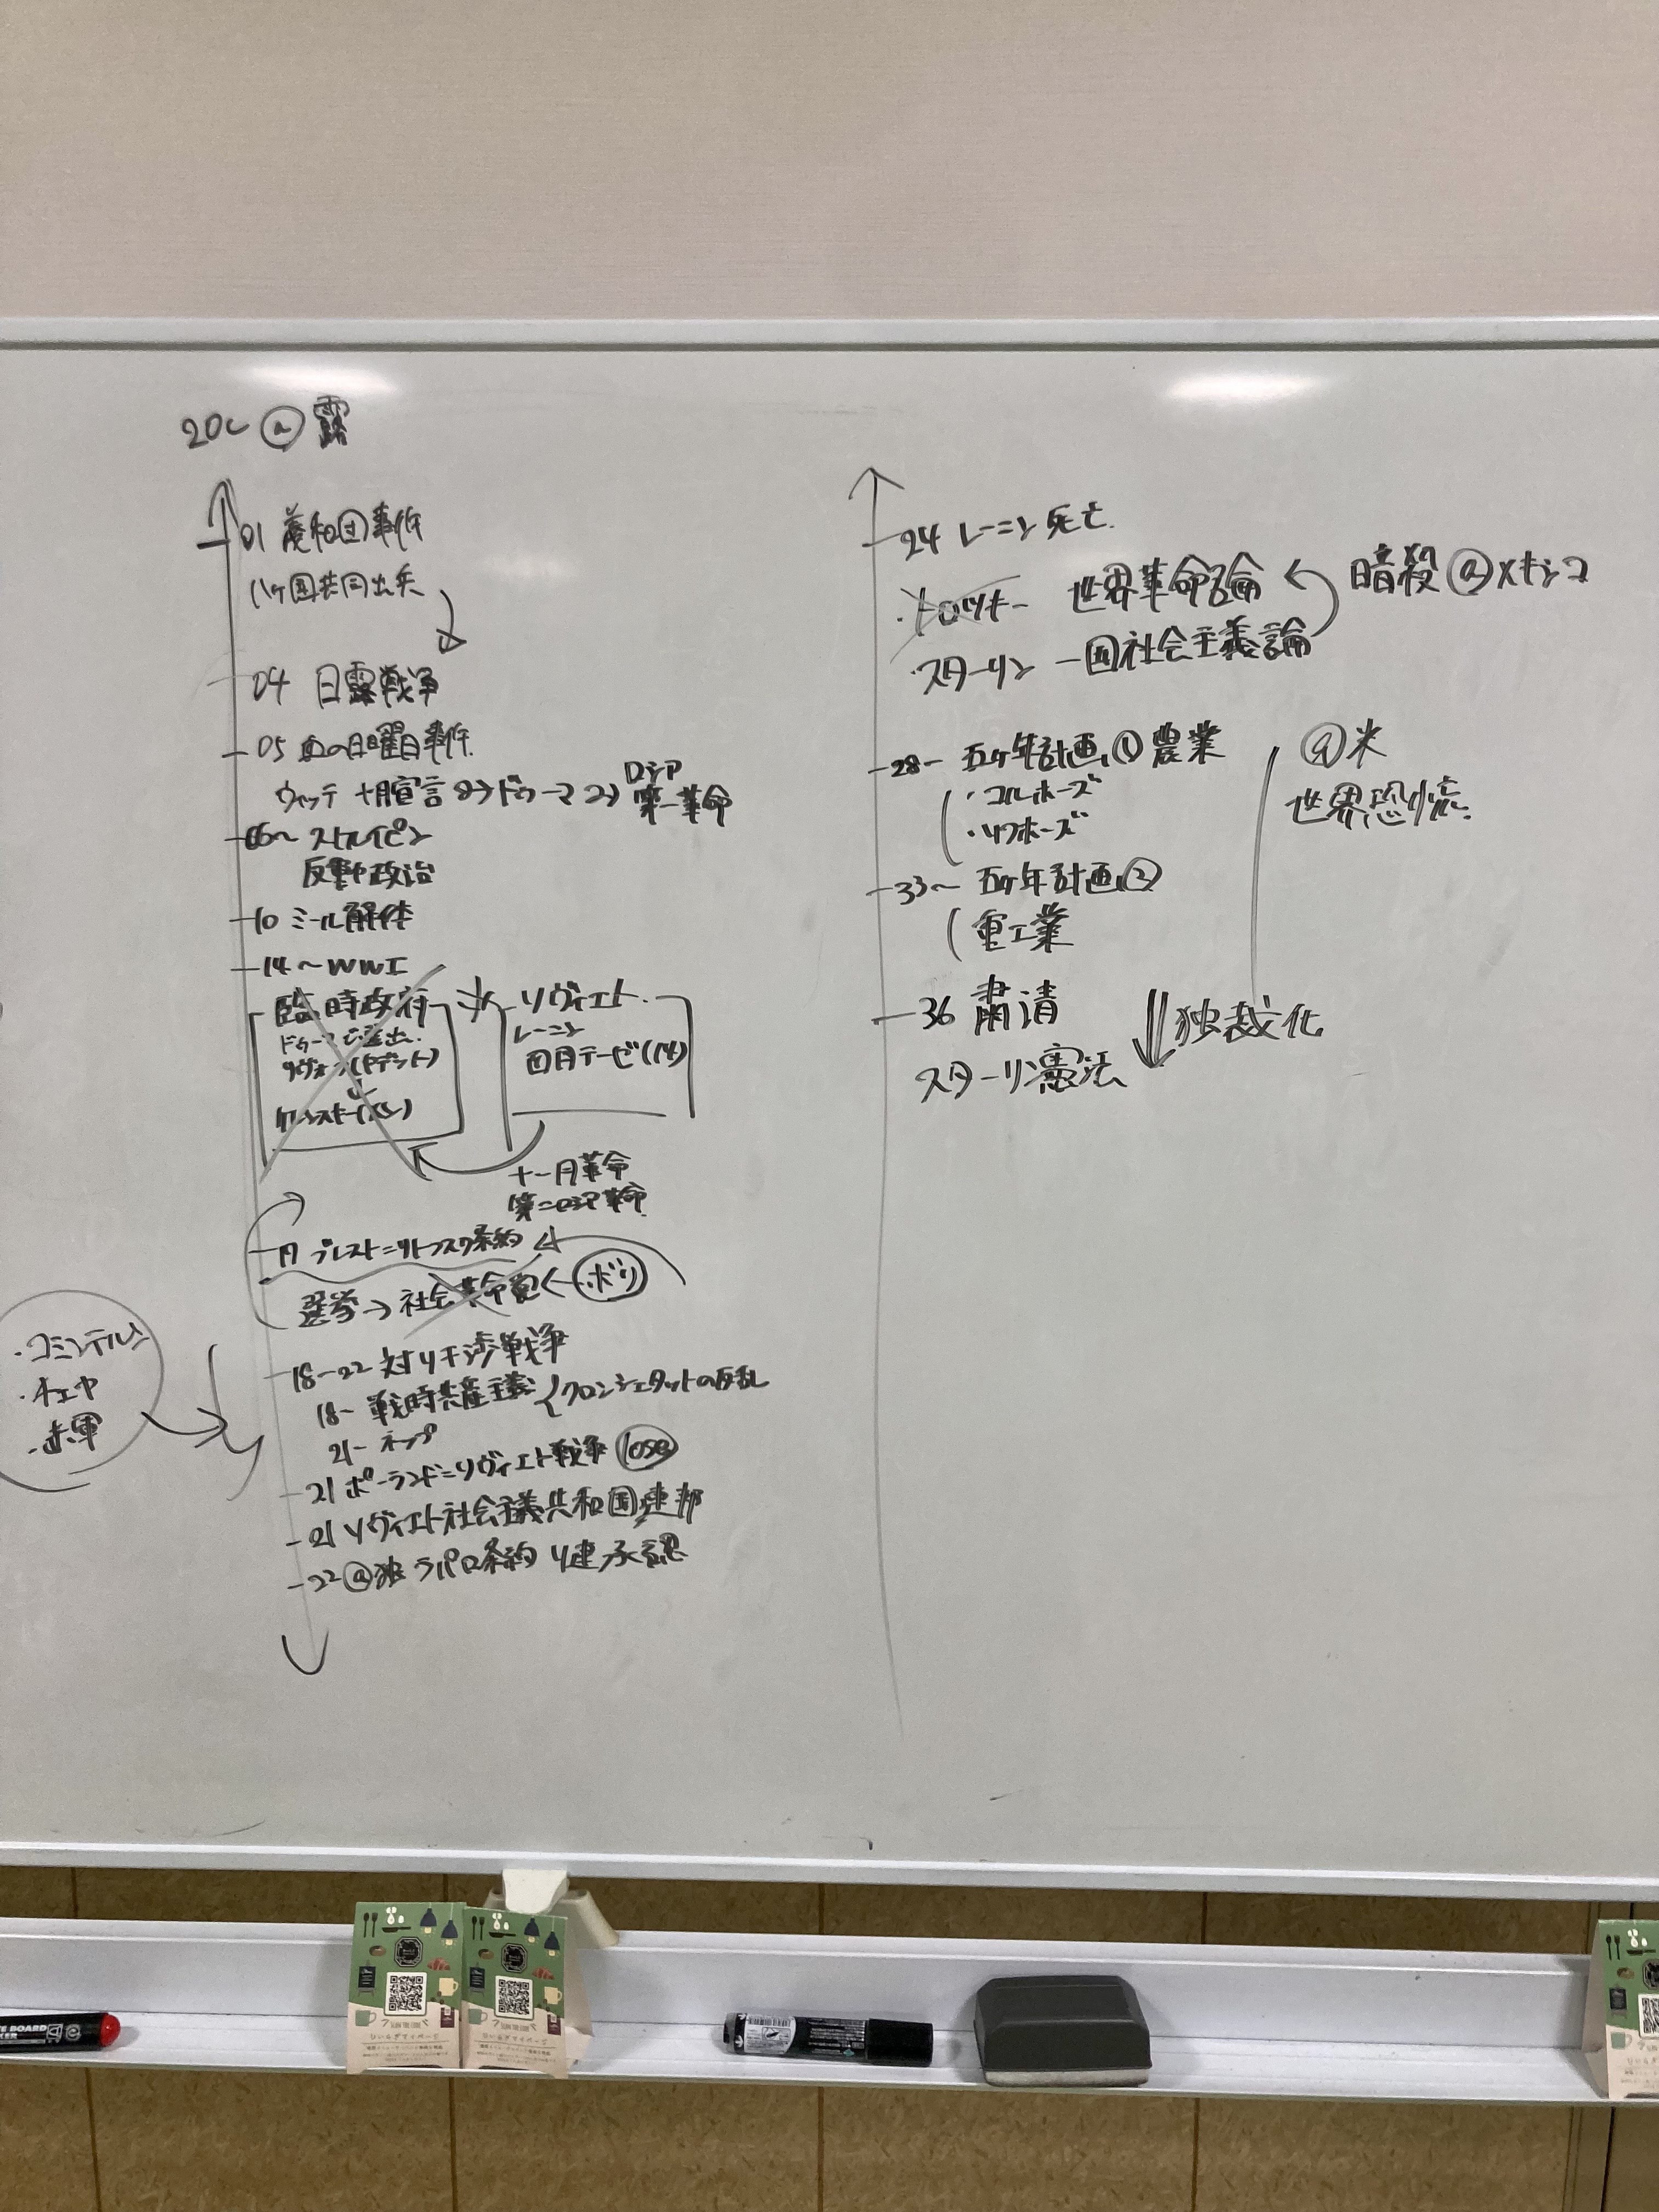 20c @露
01 義和団事件
八ヶ国共同出兵
04 日露戦争
05 血の日曜日事件
ウィッテ 十月宣言 → ドゥーマ → ロシア第一革命
06~ ストルイピン
反動政治
10 ミール解体
14~WWI
臨時政府
ドゥーマで選出
リヴォフ(カデット)
↓
ケレンスキー
ソヴィエト
レーニン
四月テーゼ(14)
十一月革命
第二ロシア革命
ブレスト=リトフスク条約
選挙→社会革命党←ボリ
・コミンテルン
・チェカ
・赤軍
18-22 対ソ干渉戦争
18- 戦時共産主義 クロンシュタットの反乱
21- ネップ
21 ポーランド=ソヴィエト戦争 lose
21 ソヴィエト社会主義共和国連邦
22 @独 ラパロ条約 ソ連承認
24 レーニン死亡
・トロツキー 世界革命論 ← 暗殺@メキシコ
・スターリン 一国社会主義論
28- 五ヶ年計画① 農業
・コルホーズ
・ソフホーズ
@米
世界恐慌
33~ 五ヶ年計画②
重工業
36 粛清
スターリン憲法
独裁化